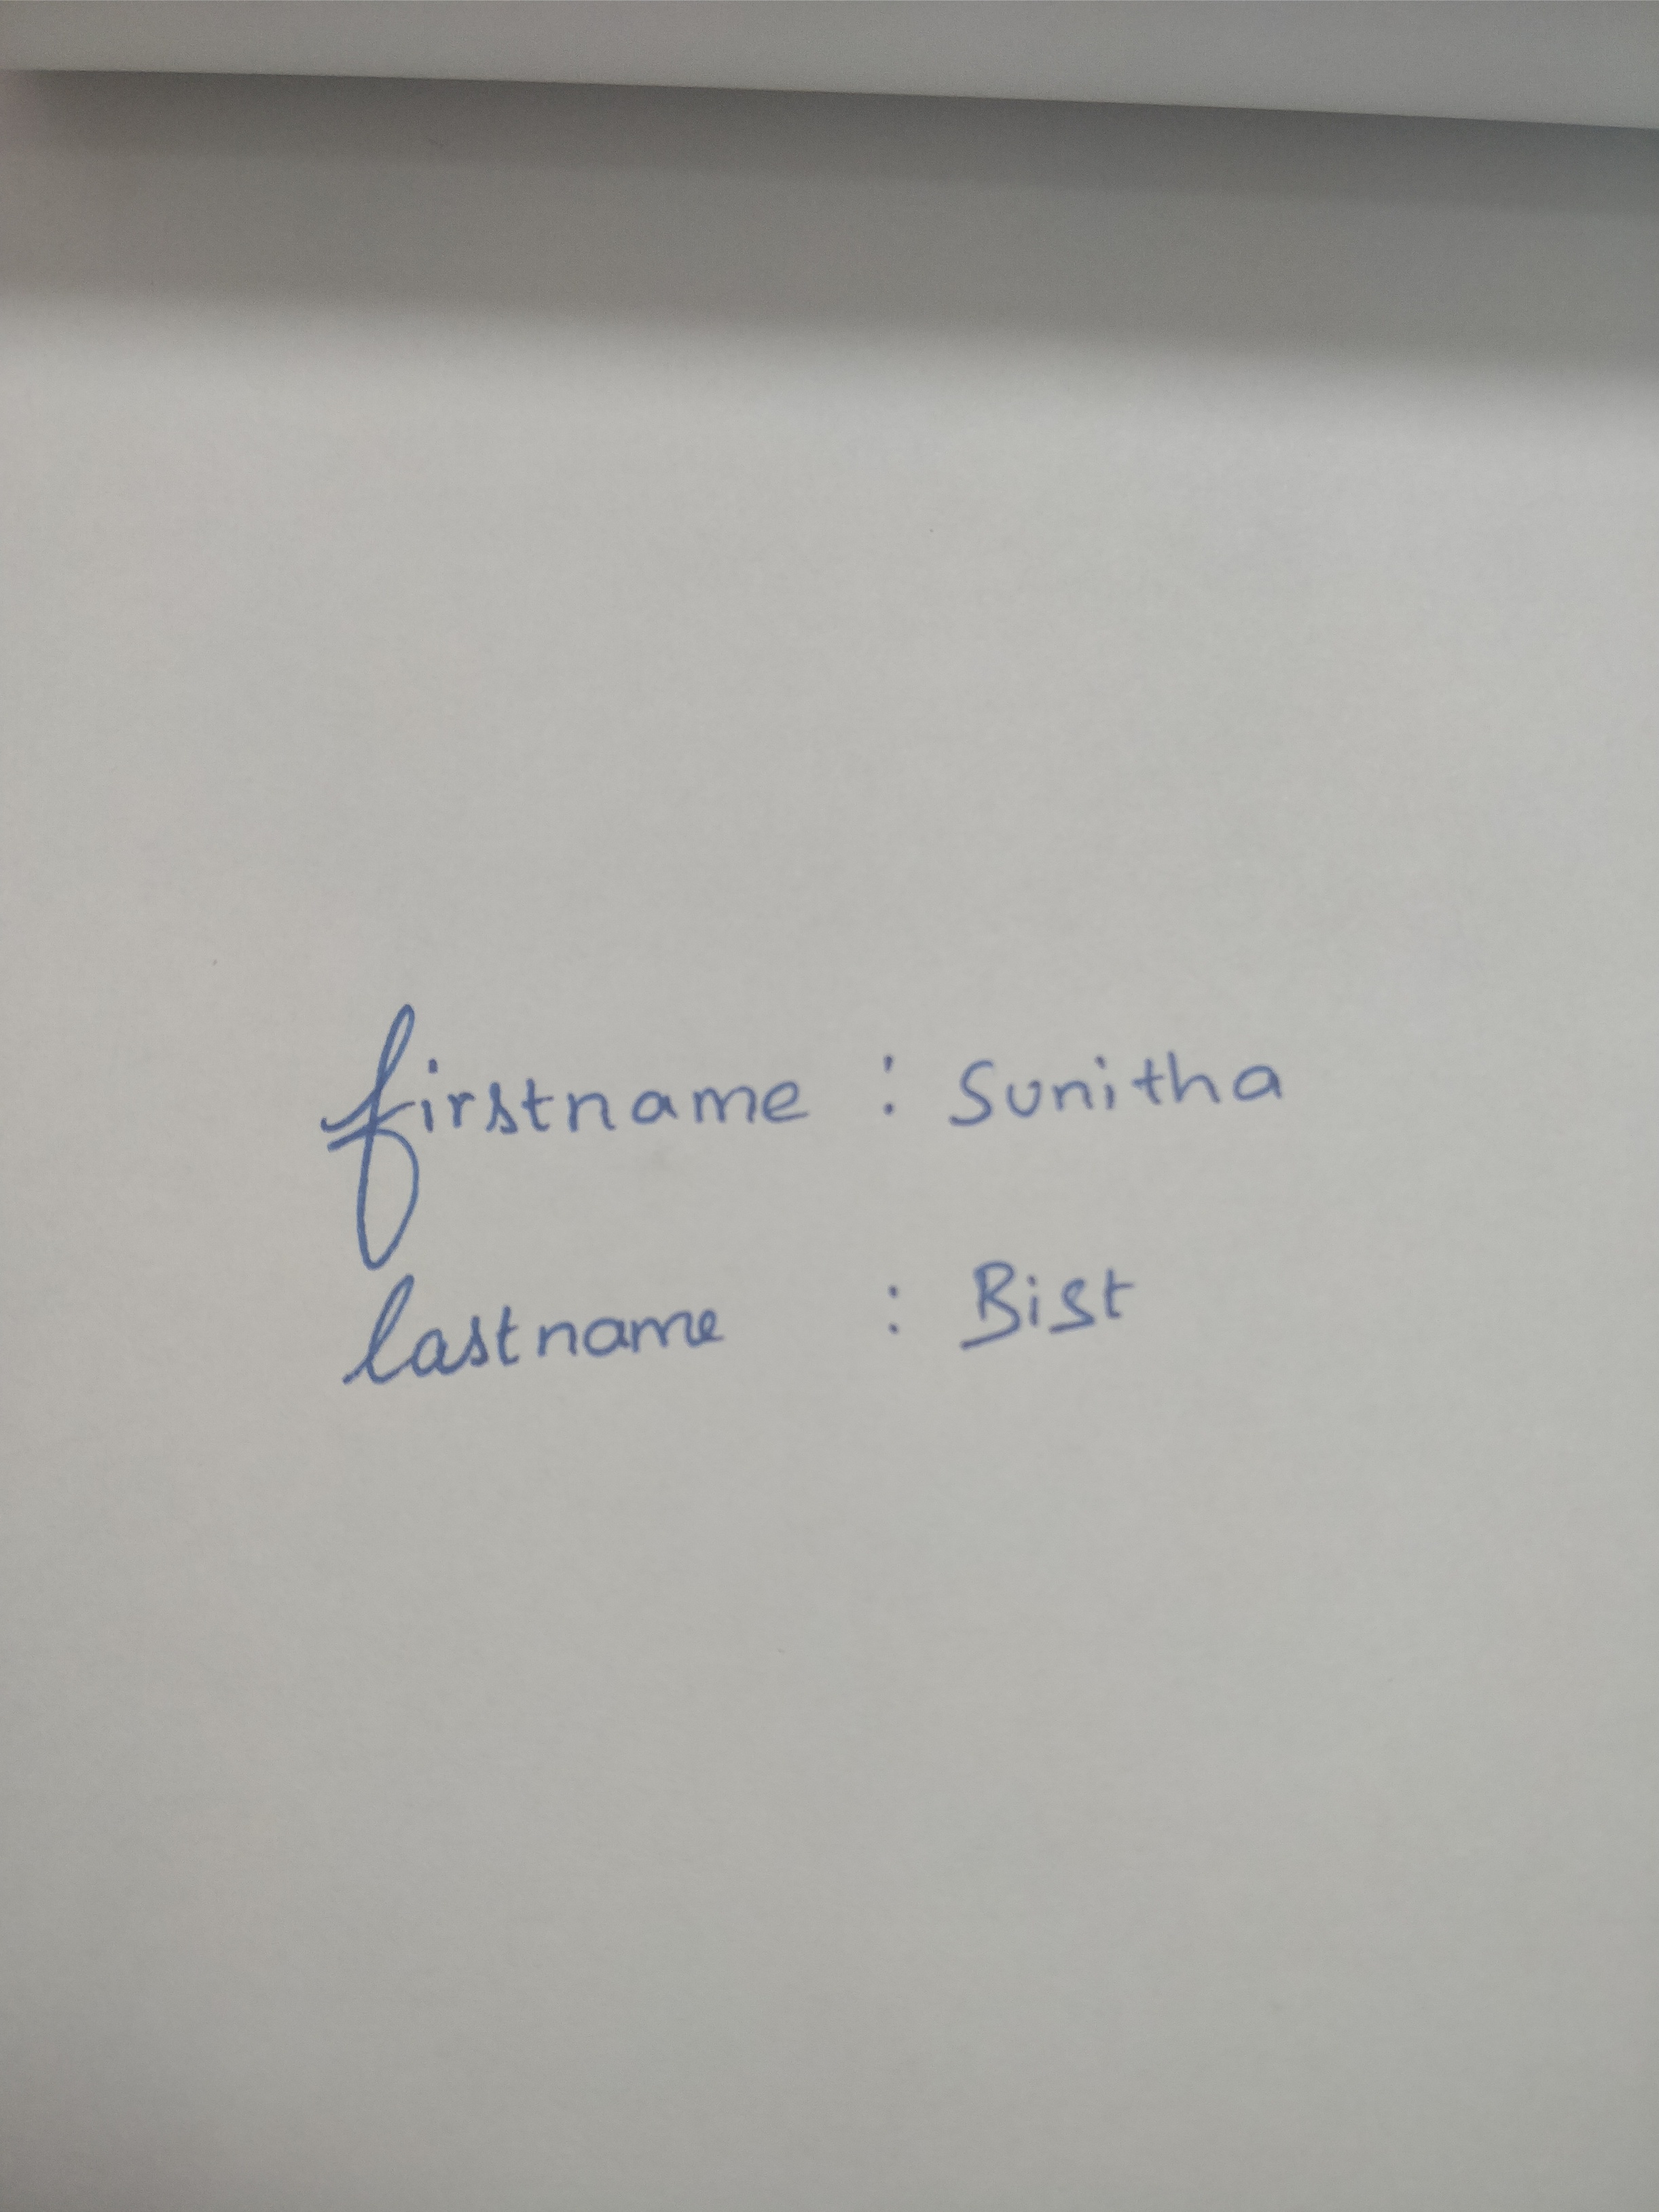 firstname : Sunitha
lastname : Bist